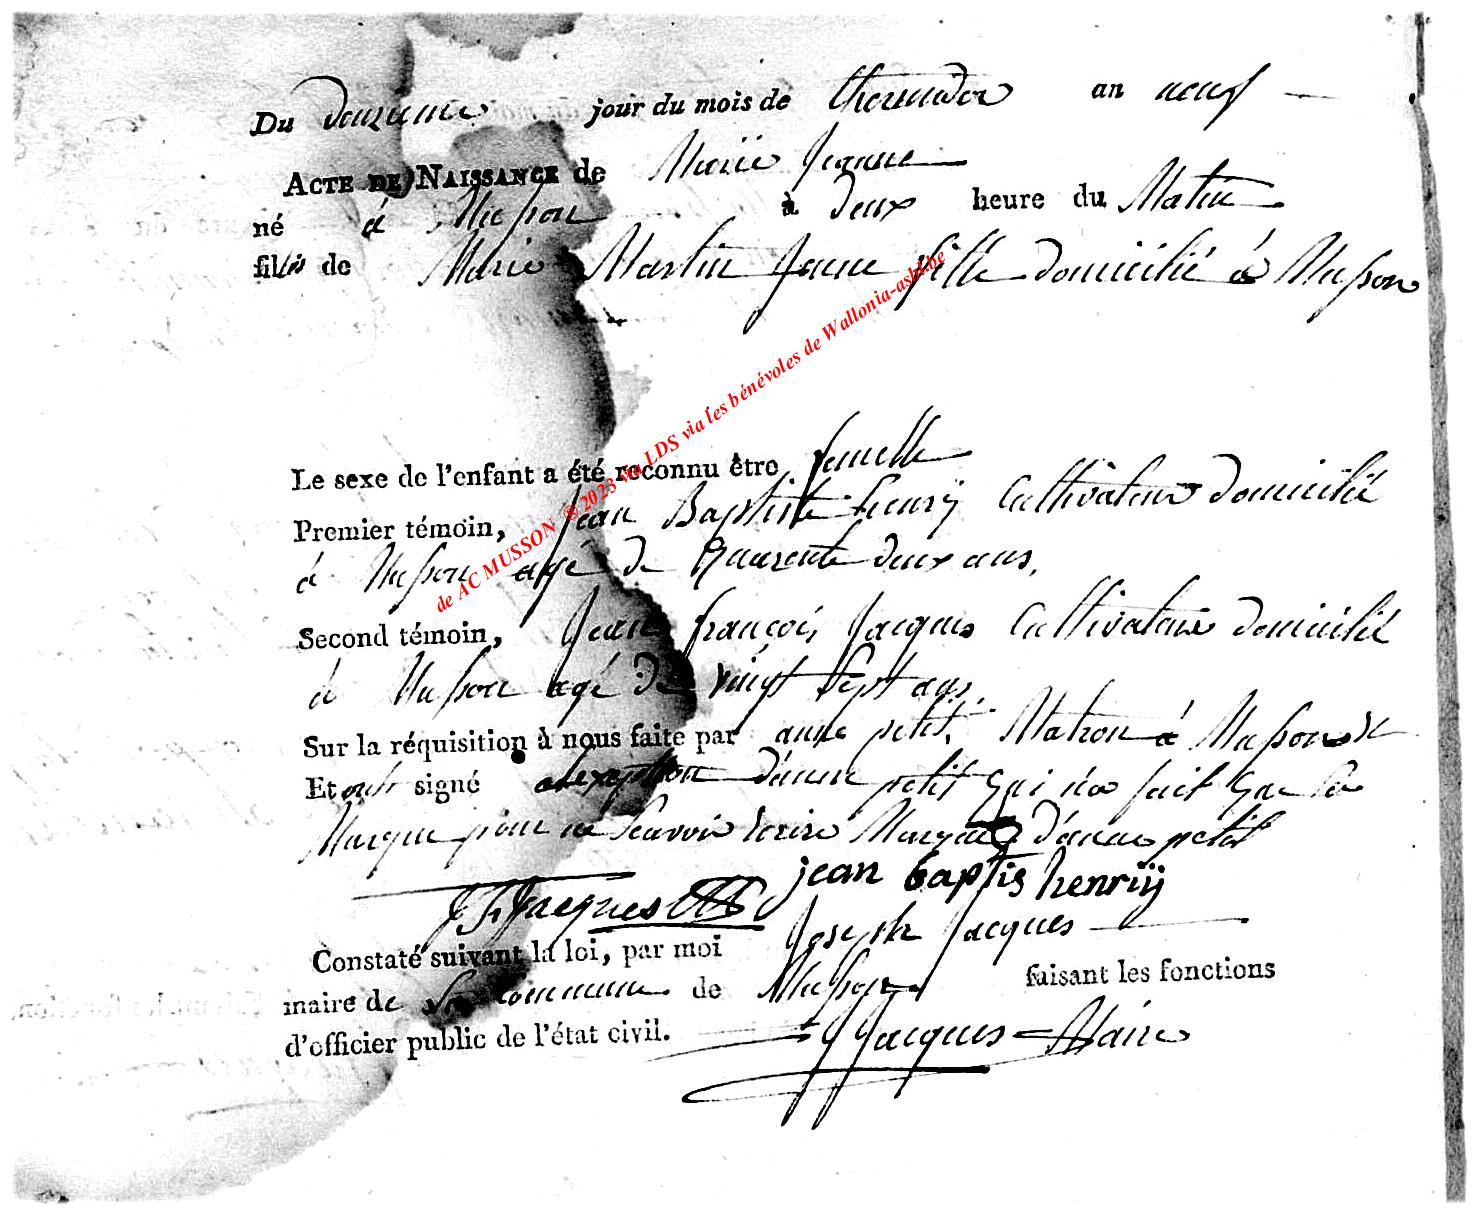 Du douzieme jour du mois de thermidor an neuf
ACTE DE NAISSANCE de Marie Jeanne
né à Musson à deux heure du Matin
fille de Marie Martin Jeune fille domicilié à Musson
Le sexe de l'enfant a été reconnu être femelle
Premier témoin, Jean Baptiste henrÿ Cultivateur domicilié
à Musson agé de quarente deux ans,
Second témoin, Jean françois Jacques Cultivateur domicilié
à Musson agé de vingt Sept ans,
Sur la réquisition à nous faite par anne petit, Matron à Musson
Et ont signé a lexeption d'anne petit qui n'a fait que sa
Marque pour ne Scavoir écrire Marque d'anne petit
jean baptis henrÿ
J F Jacques
Constaté suivant la loi, par moi Joseph Jacques
maire de la Commune de Musson faisant les fonctions
d'officier public de l'état civil. J Jacques Maire
de AC MUSSON ® 2023 via LDS via les bénévoles de Wallonia-asbl.be